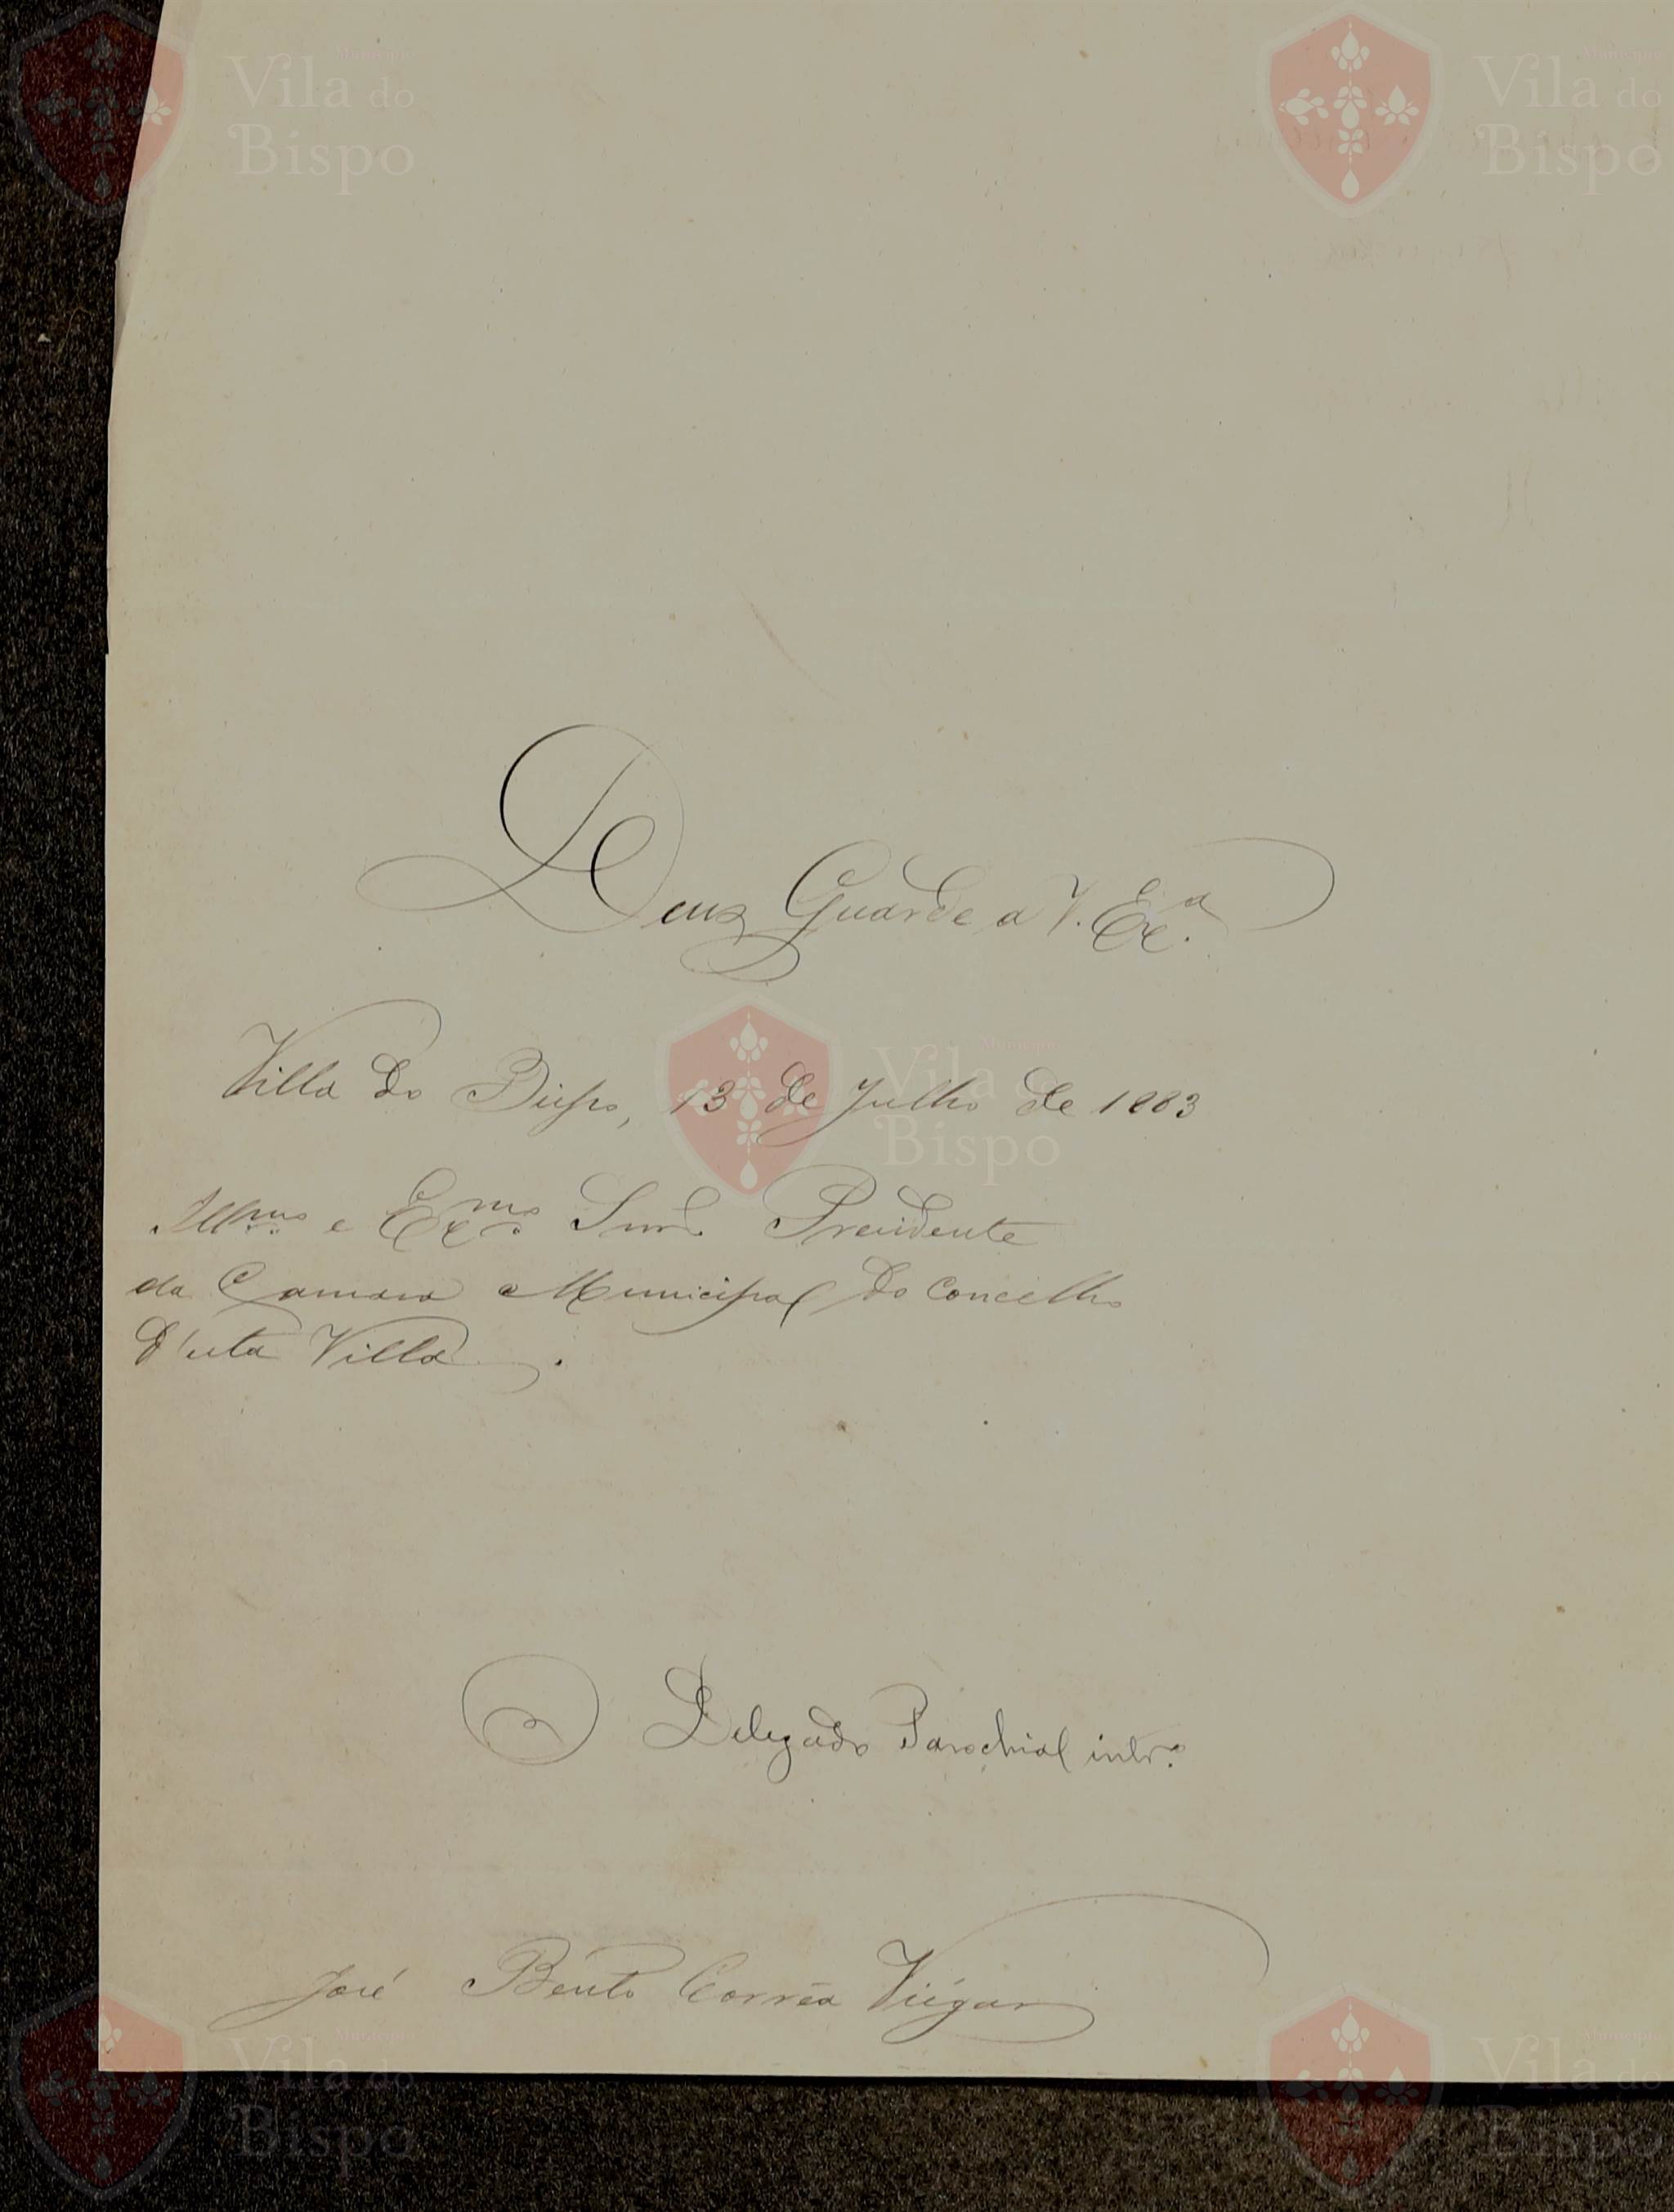 Município
Vila do
Bispo
Município
Vila do
Bispo
Deus Guarde a V. Exª.
Villa do Bispo, 13 de Julho de 1883
Município
Vila do
Bispo
Illmo e Exmo Snr. Presidente
da Camara Municipal do Concelho
d'esta Villa.
O Delegado Parochial intrº.
José Bento Corrêa Viégas
Município
Vila do
Bispo
Município
Vila do
Bispo